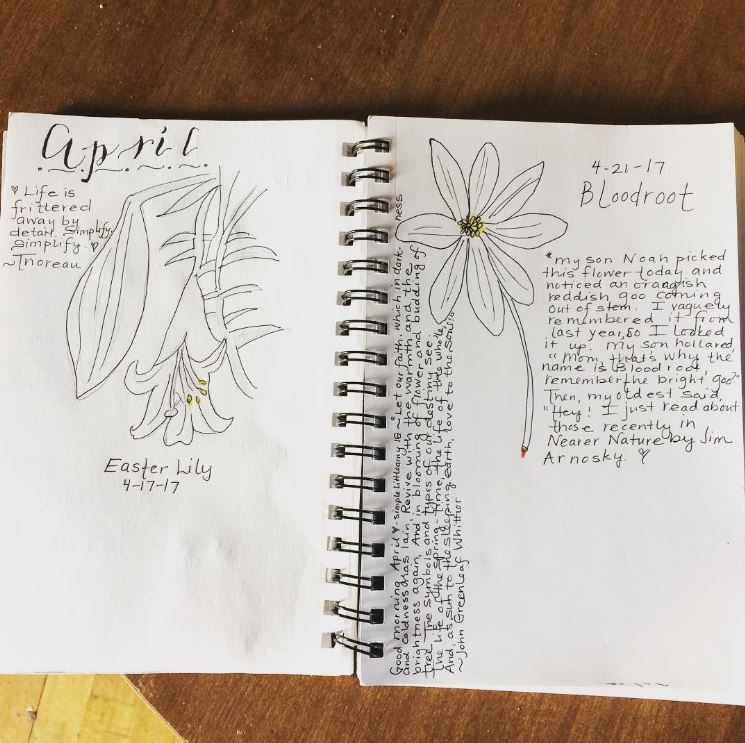 April
♥ Life is
frittered
away by
detail. Simplify,
simplify. ♥
~Thoreau
Easter Lily
4-17-17
Good morning, April ♥ -simplelittleamy IG ~ "Let our faith, which in dark-ness
and coldness has lain, Revive with the warmth and the
brightness again, And in blooming of flower and budding of
tree The symbols and types of our destiny see.
The life of the spring-time, the life of the whole,
And, as sun to the sleeping earth, love to the soul!"
~John Greenleaf Whittier
4-21-17
Bloodroot
*my son Noah picked
this flower today and
noticed an orangish
reddish goo coming
out of stem. I vaguely
remembered it from
last year, so I looked
it up. My son hollared
"Mom, that's why the
name is Bloodroot,
remember the bright goo?"
Then, my oldest said,
"Hey! I just read about
those recently in
Nearer Nature by Jim
Arnosky. ♥